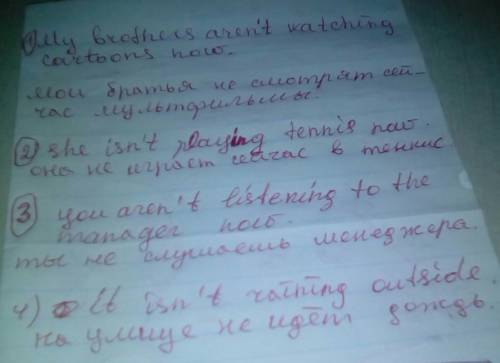 1) My brothers aren't watching
cartoons now.
мои братья не смотрят сей-
час мультфильмы.
2) she isn't playing tennis now.
она не играет сейчас в теннис
3) you aren't listening to the
manager now.
ты не слушаешь менеджера.
4) It isn't raining outside.
на улице не идёт дождь.